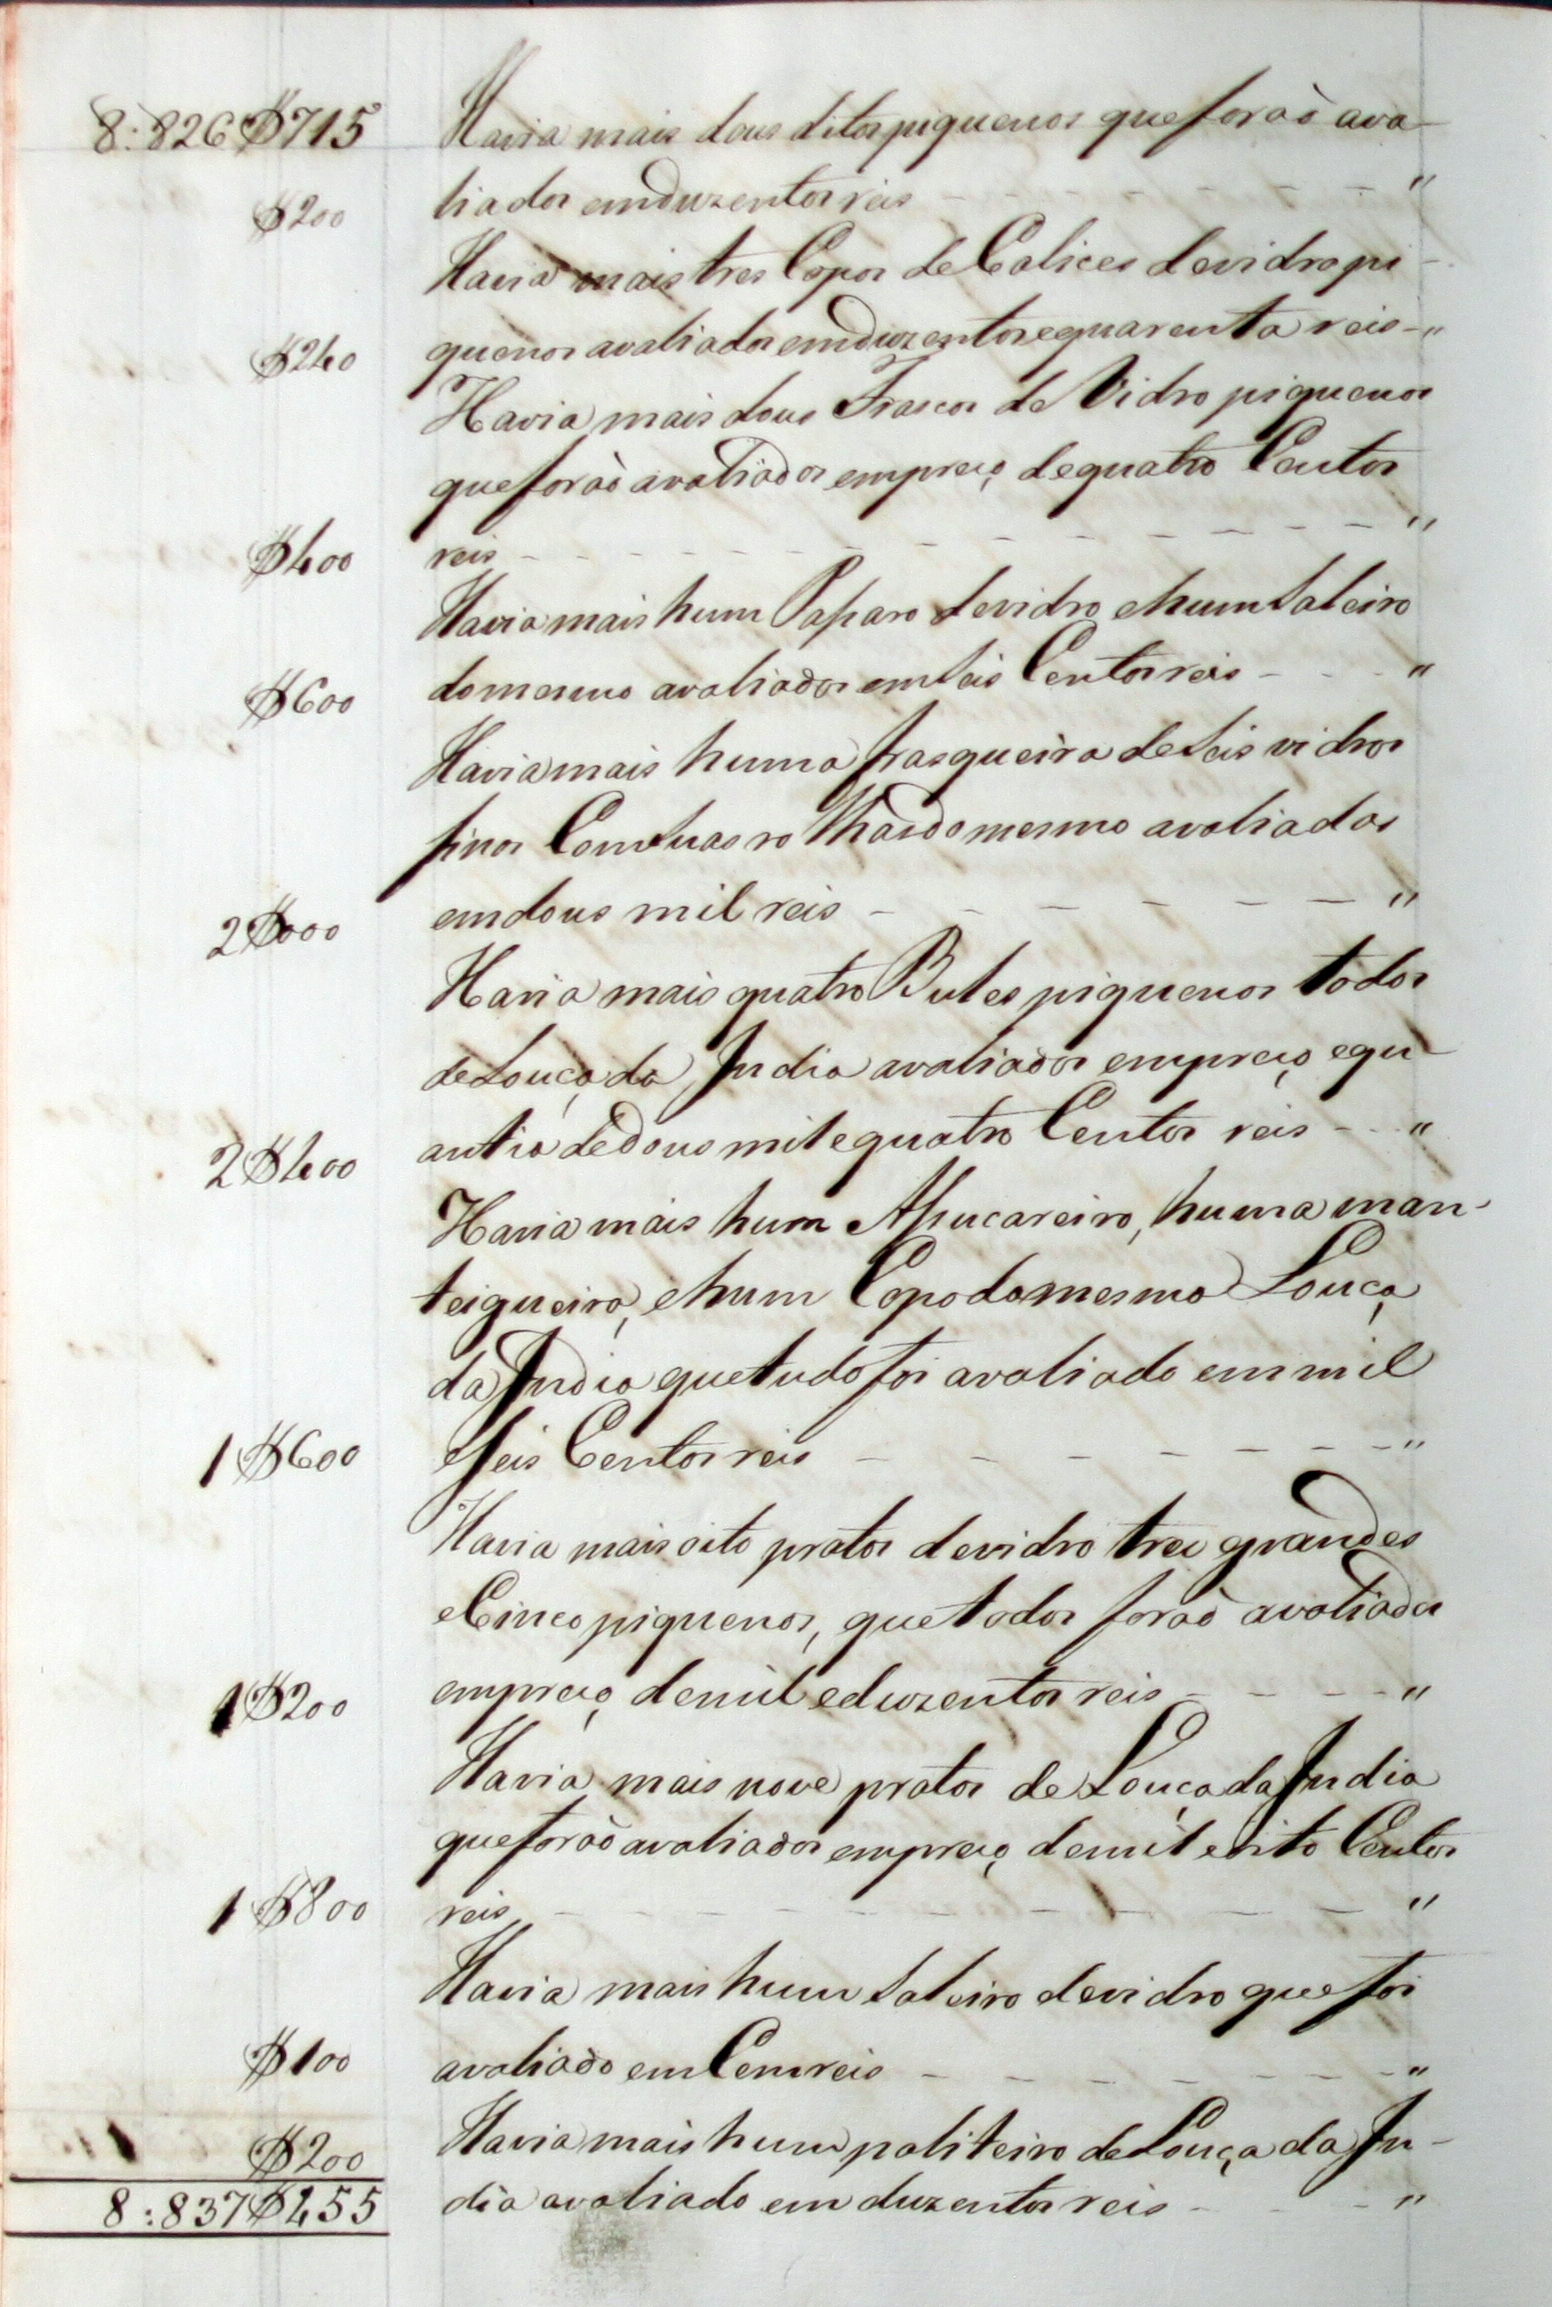 8:826$715 Havia mais dous ditos piquenos que forão ava-
$200 liados em duzentos reis - - - - - - - "
Havia mais tres Copos de Calices de vidro pi-
$240 quenos avaliados em duzentos e quarenta reis - "
Havia mais dous Frascos de Vidro piquenos
que forão avaliados em preço de quatro Centos
$400 reis - - - - - - - - - - - - "
Havia mais hum Paparo de vidro e hum Saleiro
$600 do mesmo avaliados em Seis Centos reis - - - "
Havia mais huma frasqueira de Seis vidros
finos Com Suas rolhas do mesmo avaliados
2$000 em dous mil reis - - - - - - - "
Havia mais quatro Bules piquenos todos
de Louça da India avaliados em preço e qu-
2$400 antia de dous mil e quatro Centos reis - - "
Havia mais hum Assucareiro, huma man-
teigueira, e hum Copo da mesma Louça
da India que tudo foi avaliado em mil
1$600 e Seis Centos reis - - - - - - - "
Havia mais oito pratos de vidro tres grandes
e Cinco piquenos, que todos forão avaliados
1$200 em preço de mil e duzentos reis - - - - "
Havia mais nove pratos de Louça da India
que forão avaliados em preço de mil e oito Centos
1$800 reis - - - - - - - - - - - "
Havia mais hum Saleiro de vidro que foi
$100 avaliado em Cem reis - - - - - - - "
$200 Havia mais hum paliteiro de Louça da In-
8:837$255 dia avaliado em duzentos reis - - - "